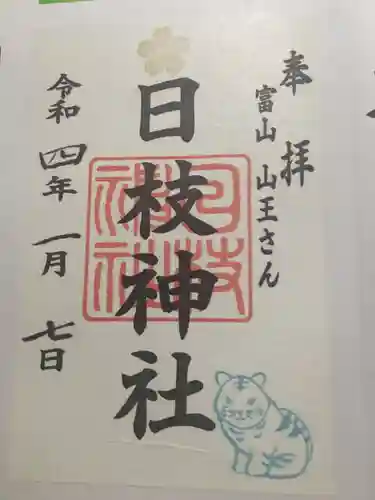 奉拝
富山 山王さん
日枝神社
令和四年 一月 七日
日枝神社